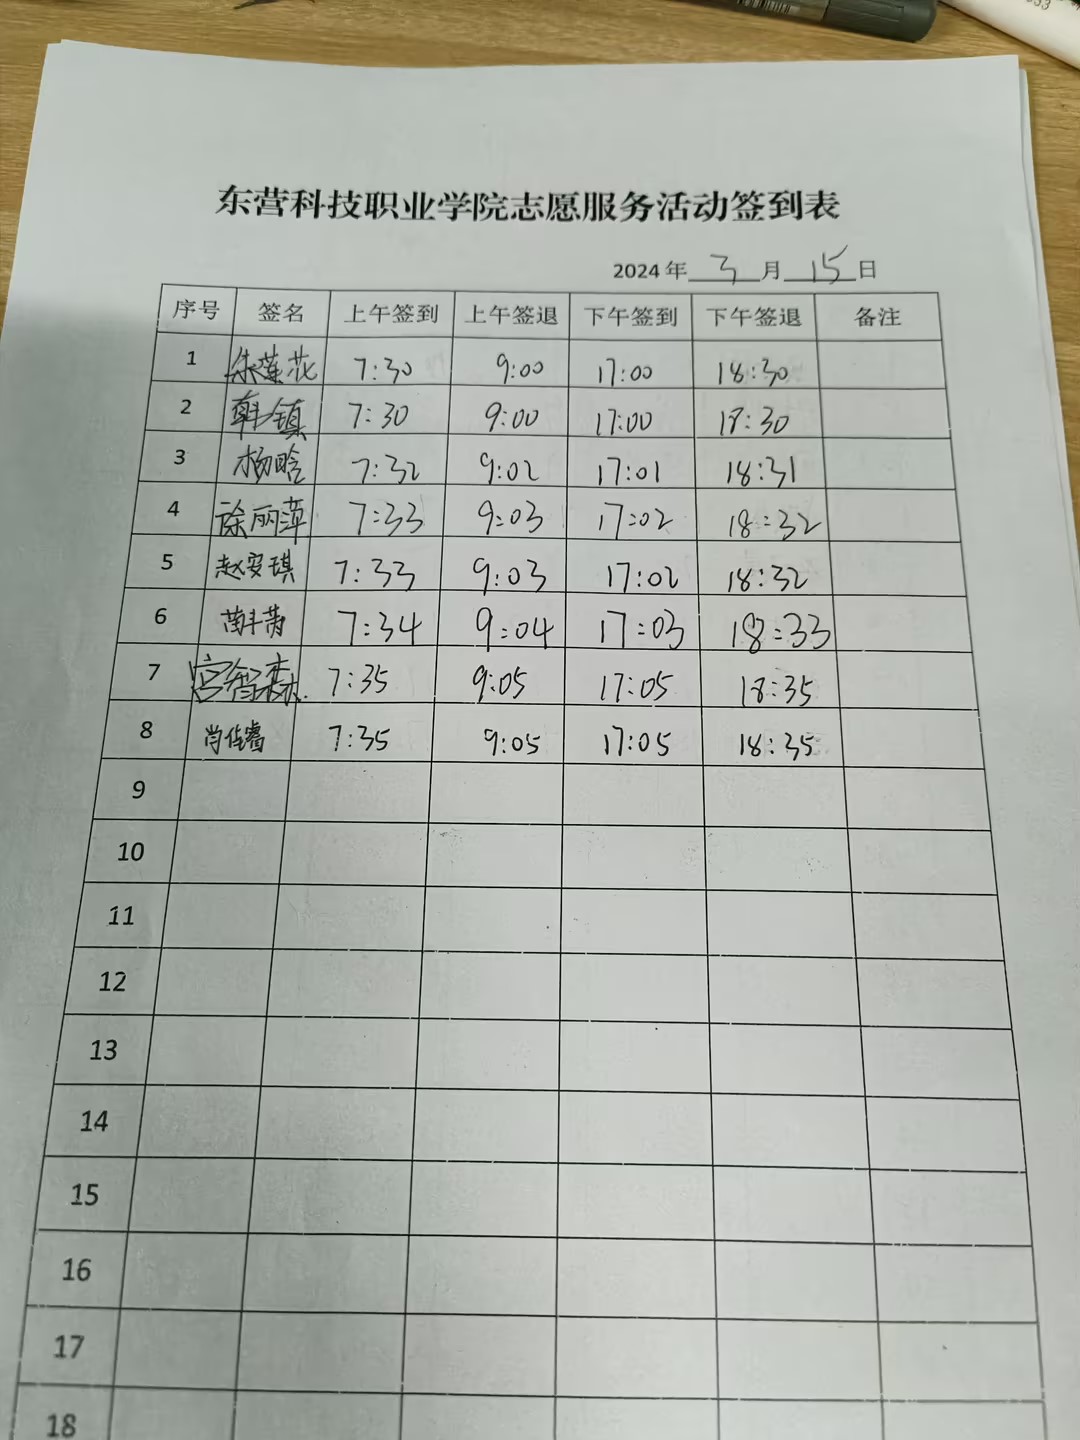 东营科技职业学院志愿服务活动签到表
2024年 3 月 15 日
序号 签名 上午签到 上午签退 下午签到 下午签退 备注
1 朱莲花 7:30 9:00 17:00 18:30
2 韩镇 7:30 9:00 17:00 18:30
3 杨晗 7:32 9:02 17:01 18:31
4 徐丽萍 7:33 9:03 17:02 18:32
5 赵安琪 7:33 9:03 17:02 18:32
6 7:34 9:04 17:03 18:33
7 宫智森 7:35 9:05 17:05 18:35
8 肖佳睿 7:35 9:05 17:05 18:35
9
10
11
12
13
14
15
16
17
18